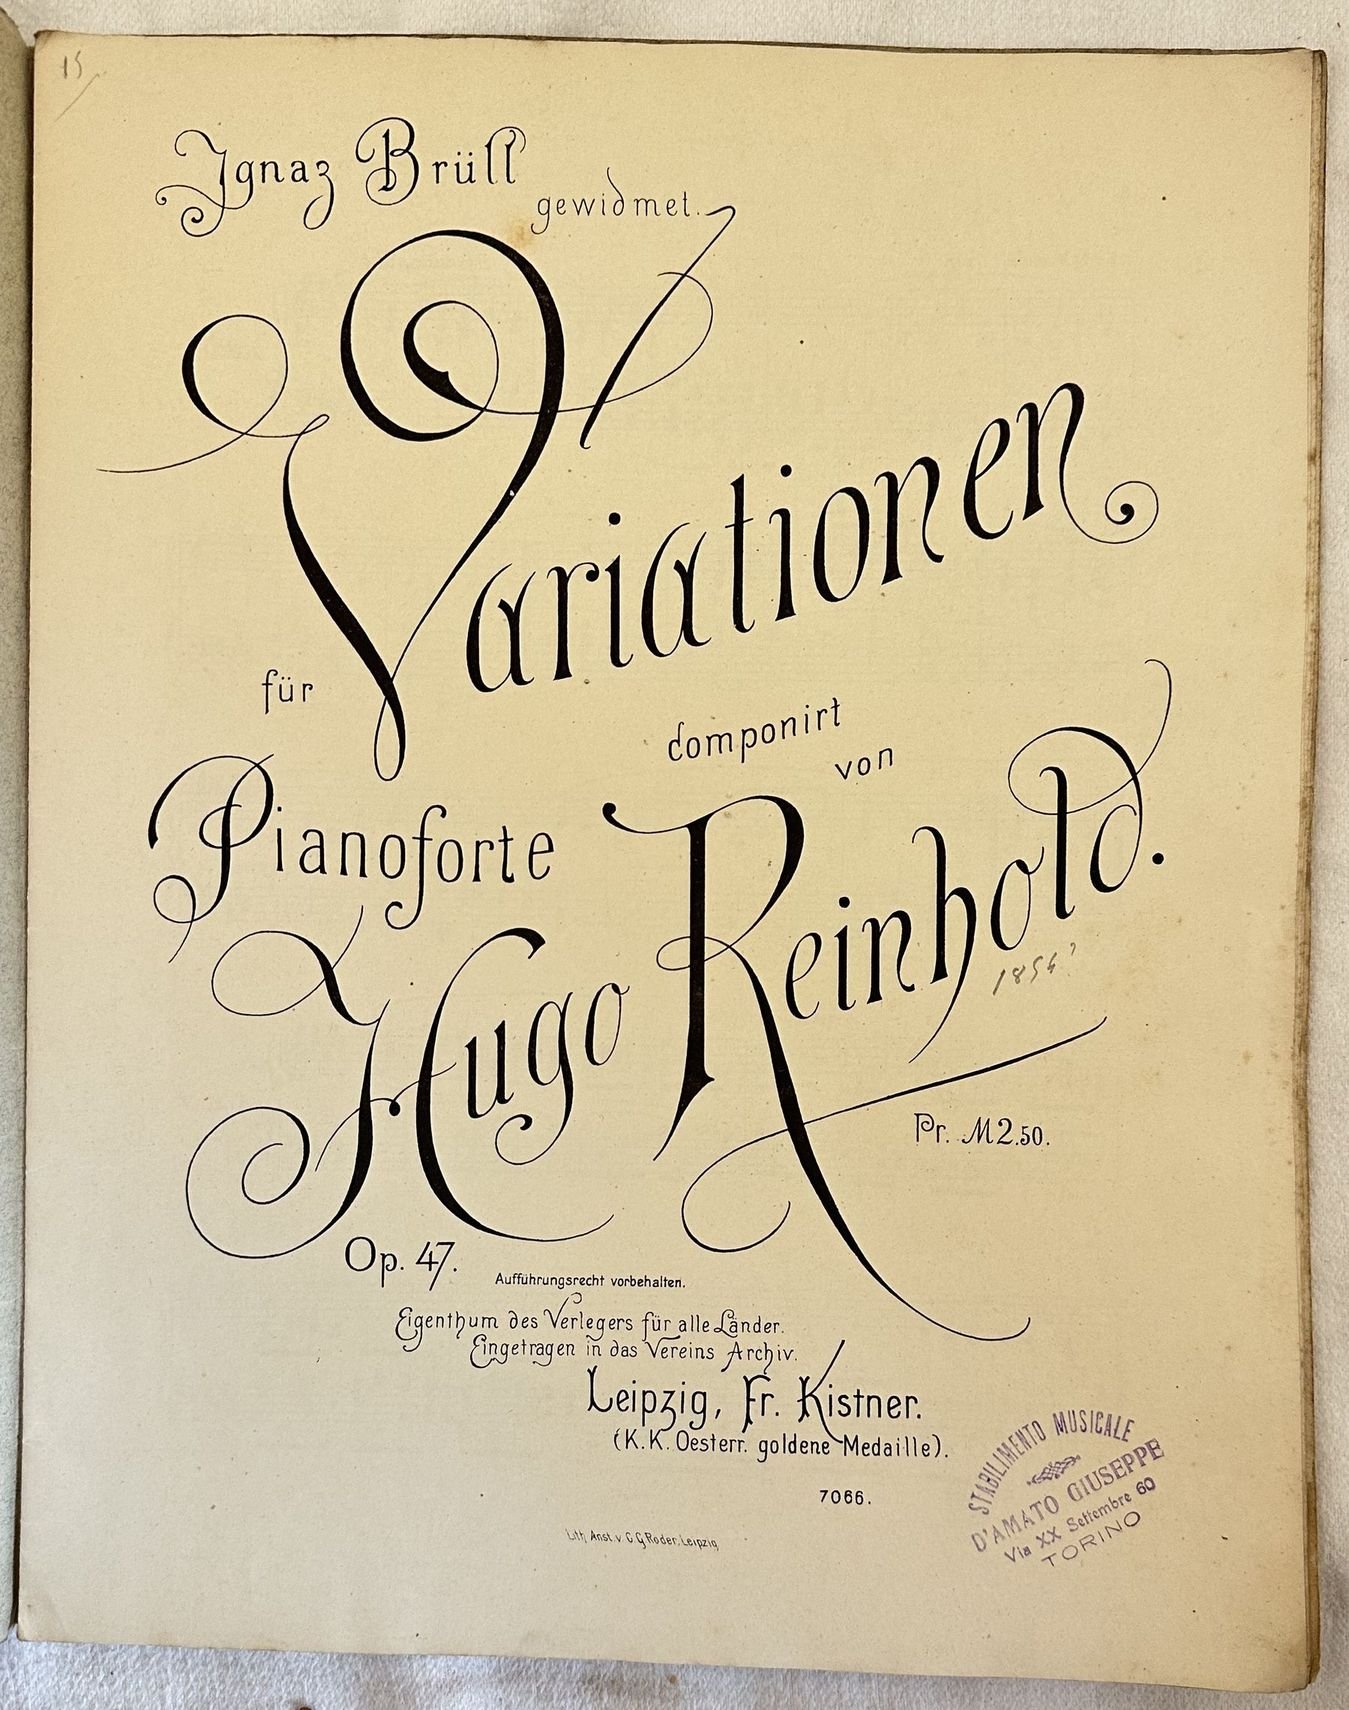 15
Ignaz Brüll
gewidmet.
Variationen
für
componirt
von
Pianoforte
Hugo Reinhold.
1854?
Pr. M 2.50.
Op. 47.
Aufführungsrecht vorbehalten.
Eigenthum des Verlegers für alle Länder.
Eingetragen in das Vereins Archiv.
Leipzig, Fr. Kistner.
(K.K. Oesterr. goldene Medaille).
7066.
Lith. Anst. v. C. G. Röder, Leipzig
STABILIMENTO MUSICALE
D'AMATO GIUSEPPE
Via XX Settembre 60
TORINO